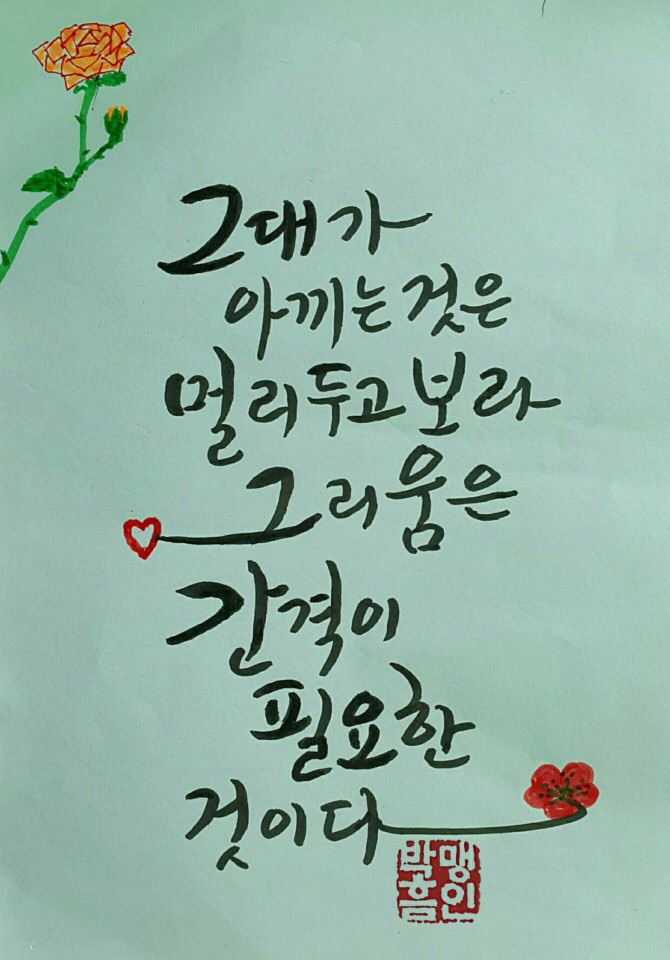 그대가
아끼는 것은
멀리두고 보라
그리움은
간격이
필요한
것이다
박흠
맹인